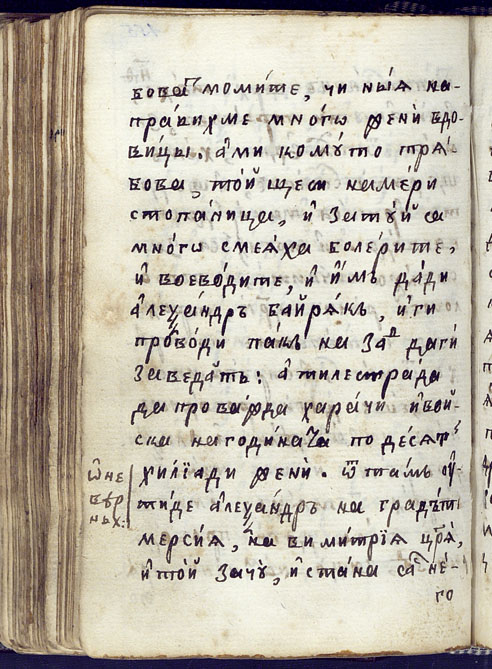 бова момите, чи ныѧ на-
правихме многѡ жени вдо-
вицы. ами комуто трѧ-
бова, той щеси намери
стопаница, и затуй са
многѡ смеѧха болерите,
и воеводите, и имъ дади
алеѯандръ байрѧкъ, и ги
проводи пакъ на запⷣ даги
заведатъ: а тиле страда
да проваждa харачи и вой-
ска на година та по десѧт
хилїади жени. ѿ тамъ ѹ-
тиде алеѯандръ на градът
мерсиѧ, на вимитрїѧ црѧ,
и той зачу, и стана са не-
го
ѡ не
вѣр
ных: